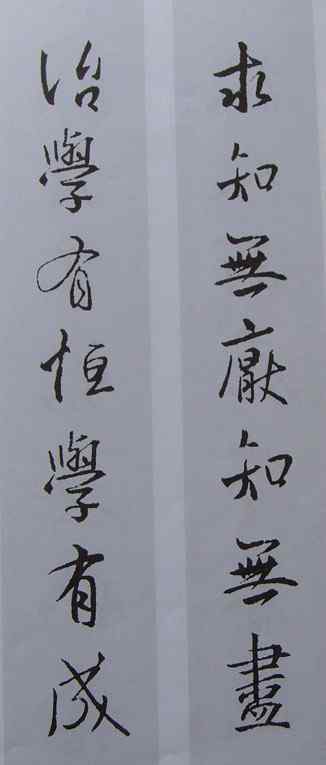 求知無厭知無盡
治學有恒學有成